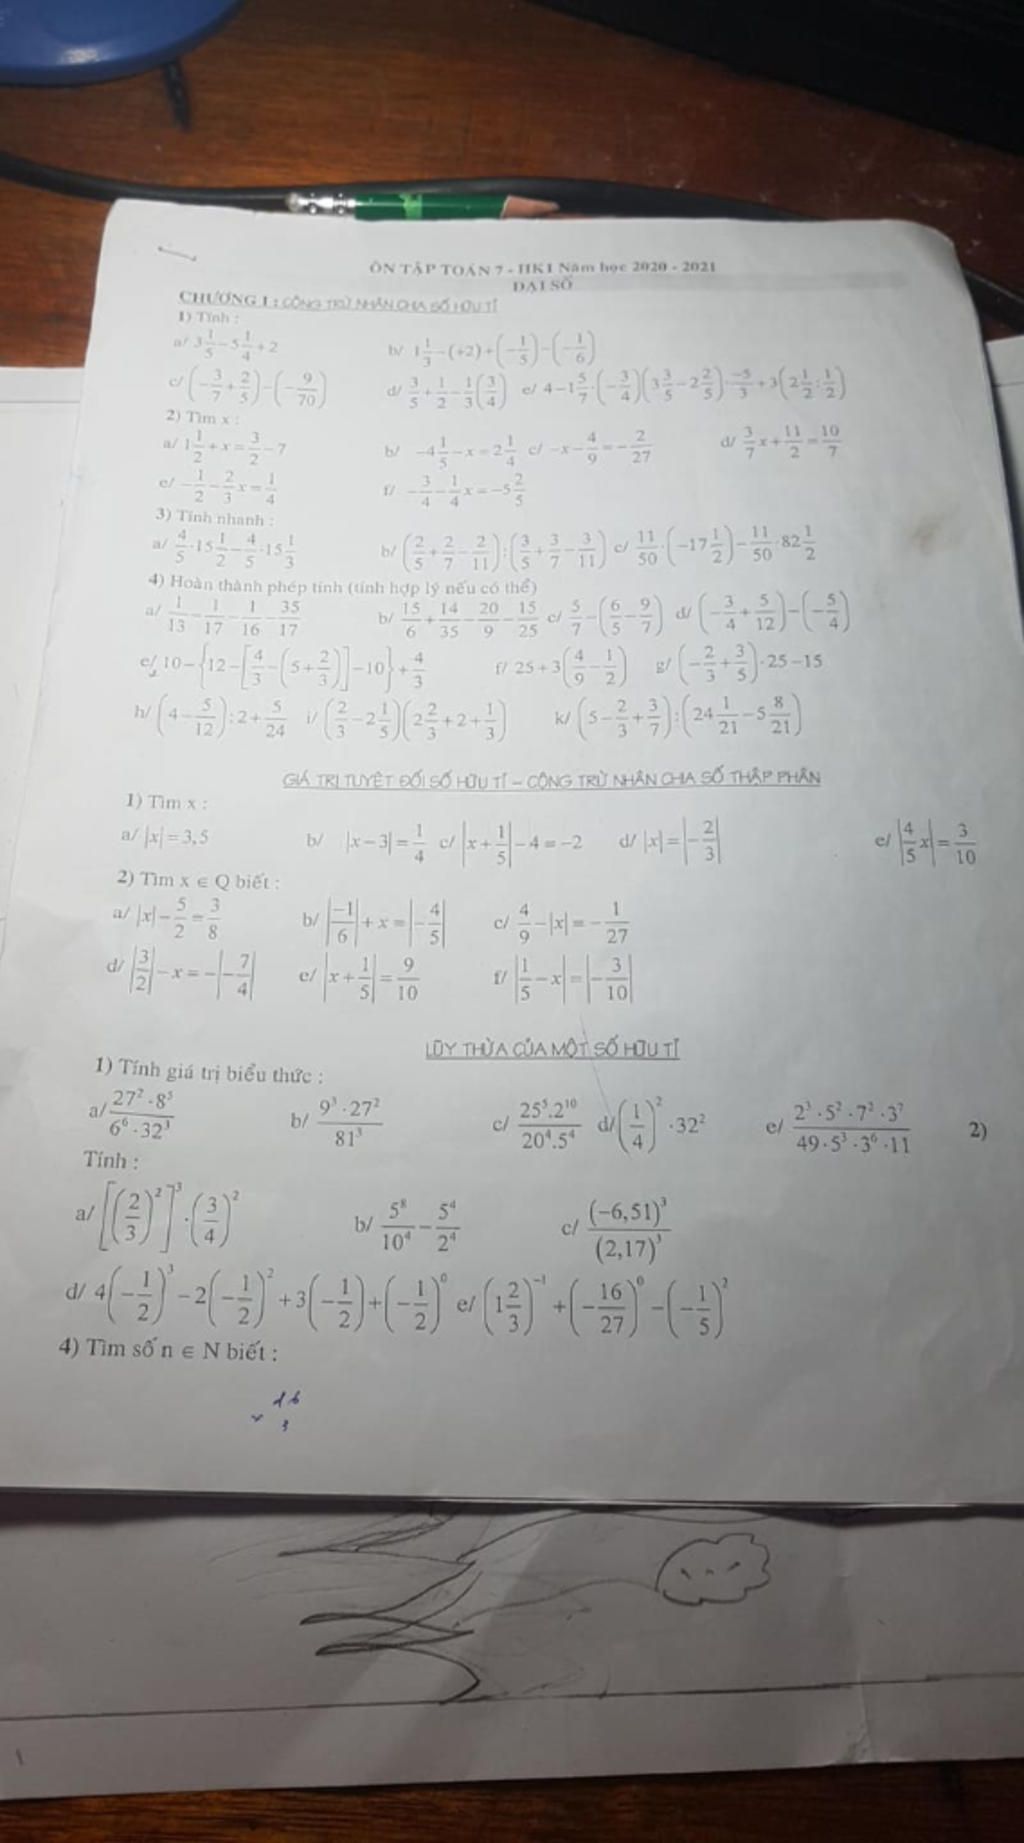 ÔN TẬP TOÁN 7 - HK1 Năm học 2020 - 2021
ĐẠI SỐ
CHƯƠNG I : CỘNG TRỪ NHÂN CHIA SỐ HỮU TỈ
1) Tính :
a/ 3 1/5 − 5 1/4 + 2 b/ 1 1/3 − (+2) + (−1/5) − (−1/6)
c/ (−3/7 + 2/5) − (−9/70) d/ 3/5 + 1/2 − 1/3 (3/4) e/ 4 − 1 5/7 · (−3/4)(3 3/5 − 2 2/5) · −5/3 + 3(2 1/2 : 1/2)
2) Tìm x :
a/ 1 1/2 + x = 3/2 − 7 b/ −4 1/5 − x = 2 1/4 c/ −x − 4/9 = −2/27 d/ 3/7 x + 11/2 = 10/7
e/ −1/2 − 2/3 x = 1/4 f/ −3/4 − 1/4 x = −5 2/5
3) Tính nhanh :
a/ 4/5 · 15 1/2 − 4/5 · 15 1/3 b/ (2/5 + 2/7 − 2/11) : (3/5 + 3/7 − 3/11) c/ 11/50 · (−17 1/2) − 11/50 · 82 1/2
4) Hoàn thành phép tính (tính hợp lý nếu có thể)
a/ 1/13 − 1/17 − 1/16 − 35/17 b/ 15/6 + 14/35 − 20/9 − 15/25 c/ 5/7 − (6/5 − 9/7) d/ (−3/4 + 5/12) − (−5/4)
e/ 10 − {12 − [4/3 − (5 + 2/3)] − 10} + 4/3 f/ 25 + 3(4/9 − 1/2) g/ (−2/3 + 3/5) · 25 − 15
h/ (4 − 5/12) : 2 + 5/24 i/ (2/3 − 2 1/5)(2 2/3 + 2 + 1/3) k/ (5 − 2/3 + 3/7) : (24 1/21 − 5 8/21)
GIÁ TRỊ TUYỆT ĐỐI SỐ HỮU TỈ – CỘNG TRỪ NHÂN CHIA SỐ THẬP PHÂN
1) Tìm x :
a/ |x| = 3,5 b/ |x − 3| = 1/4 c/ |x + 1/5| − 4 = −2 d/ |x| = |−2/3| e/ |4/5 x| = 3/10
2) Tìm x ∈ Q biết :
a/ |x| − 5/2 = 3/8 b/ |−1/6| + x = |−4/5| c/ 4/9 − |x| = −1/27
d/ |3/2| − x = −|−7/4| e/ |x + 1/5| = 9/10 f/ |1/5 − x| = |−3/10|
LŨY THỪA CỦA MỘT SỐ HỮU TỈ
1) Tính giá trị biểu thức :
a/ 27² · 8⁵ / 6⁶ · 32³ b/ 9³ · 27² / 81³ c/ 25⁵.2¹⁰ / 20⁴.5⁴ d/ (1/4)² · 32² e/ 2³ · 5² · 7² · 3⁷ / 49 · 5³ · 3⁶ · 11 2)
Tính :
a/ [(2/3)²]³ · (3/4)² b/ 5⁸/10⁴ − 5⁴/2⁴ c/ (−6,51)³ / (2,17)³
d/ 4(−1/2)³ − 2(−1/2)² + 3(−1/2) + (−1/2)⁰ e/ (1 2/3)⁻¹ + (−16/27)⁰ − (−1/5)²
4) Tìm số n ∈ N biết :